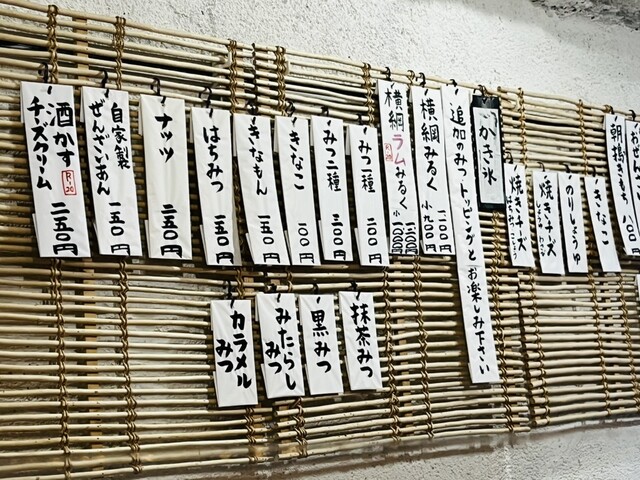 朝搗きもち
きなこ
のりしょうゆ
焼きチーズ
焼きチーズ
かき氷
追加のみつトッピングとお楽しみ下さい
横綱みるく
一二〇〇円
小九〇〇円
横綱ラムみるく
R20
みつ一種
二〇〇円
みつ二種
三〇〇円
きなこ
一〇〇円
きなもん
一五〇円
はちみつ
一五〇円
ナッツ
二五〇円
自家製
ぜんざいあん
一五〇円
酒かす
チーズクリーム
R20
二五〇円
抹茶みつ
黒みつ
みたらしみつ
カラメルみつ